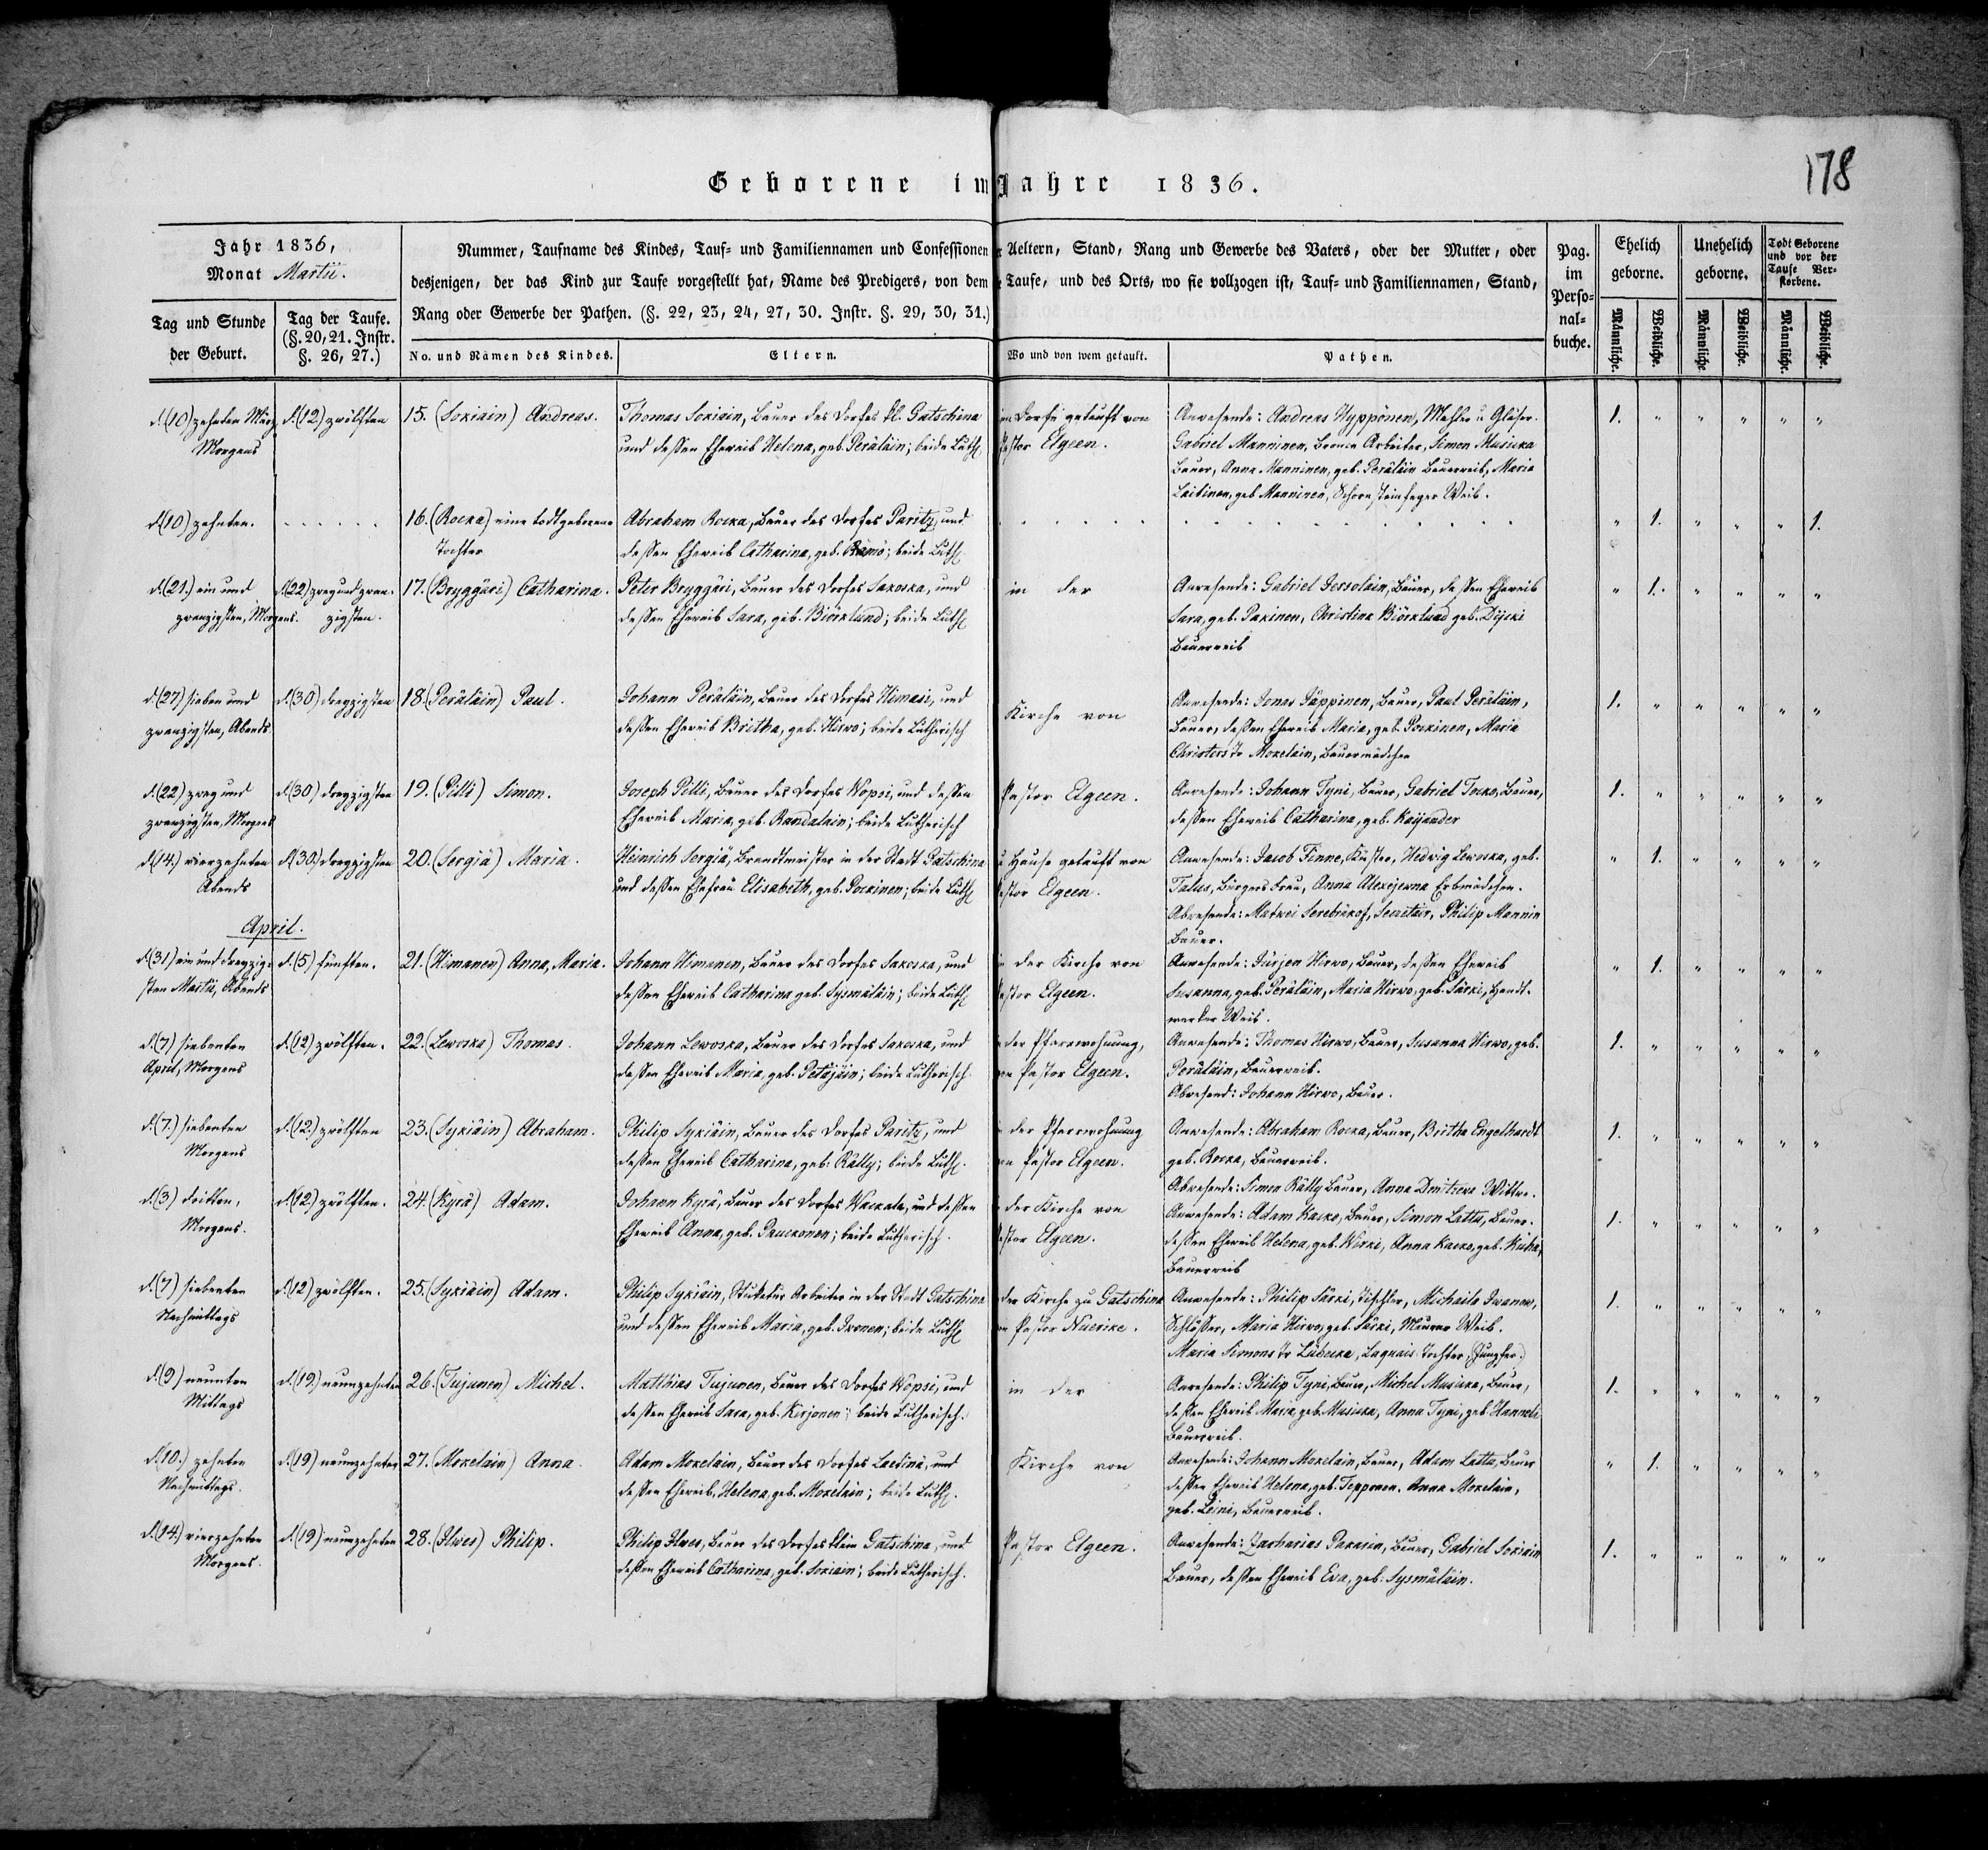 178
Geborene im Jahre 1836.
Jahr 1836,
Monat Martii.
Tag und Stunde der Geburt.
Tag der Taufe. (§. 20, 21. Instr. §. 26, 27.)
Nummer, Taufname des Kindes, Tauf- und Familiennamen und Confessionen
r Aeltern, Stand, Rang und Gewerbe des Vaters, oder der Mutter, oder
desjenigen, der das Kind zur Taufe vorgestellt hat, Name des Predigers, von dem
Taufe, und des Orts, wo sie vollzogen ist, Tauf- und Familiennamen, Stand,
Rang oder Gewerbe der Pathen. (§. 22, 23, 24, 27, 30. Instr. §. 29, 30, 31.)
No. und Namen des Kindes.
Eltern.
Wo und von wem getauft.
Pathen.
Pag. im Perso- nal- buche.
Ehelich geborne.
Unehelich geborne.
Todt Geborene und vor der Taufe Ver- storbene.
Männliche.
Weibliche.
Männliche
Weibliche.
Männliche.
Weibliche.
d. (10) zehnten März Morgens
d. (12) zwölften
15. (Sokiain) Andreas.
Thomas Sokiain, Bauer des Dorfes Kl. Gatschina
und dessen Eheweib Helena, geb. Peräläin; beide Luth.
im Dorfe getauft von
Pastor Elgeen.
Anwesende: Andreas Hyppönen, Mahler u Glaser.
Gabriel Manninen, Arbeiter, Simon Musicka
Bauer, Anna Manninen, geb. Peräläin Bauerweib, Maria
Laitinen, geb Manninen, Schornsteinfeger Weib.
1. " " " " "
d. (10) zehnten.
16. (Rocka) eine todtgeborene
Tochter
Abraham Rocka, Bauer des Dorfes Paritz, und
dessen Eheweib Catharina, geb. Rämö; beide Luth.
" 1. " " " 1.
d. (21.) ein und
zwanzigsten, Morgens.
d. (22) zwey und zwan-
zigsten.
17. (Bryggäri) Catharina.
Peter Bryggäri, Bauer des Dorfes Sakoska, und
dessen Eheweib Sara, geb. Biörklund; beide Luth.
in der
Anwesende: Gabriel Jersolain, Bauer, dessen Eheweib
Sara, geb. Pakinen, Christina Biörklund geb.
Bauerweib
" 1. " " " "
d. (27) sieben und
zwanzigsten, Abends
d. (30) dreyzigsten
18. (Peräläin) Paul.
Johann Peräläin, Bauer des Dorfes Himasi, und
dessen Eheweib Britha, geb. Hirwo; beide Lutherisch
Kirche von
Anwesende: Jonas Jäppinen, Bauer, Paul Peräläin,
Bauer, dessen Eheweib Maria, geb. Pockinen, Maria
Christerstr Mokelain, Bauermädchen
1. " " " " "
d. (22) zwey und
zwanzigsten, Morgens
d. (30) dreyzigsten
19. (Pilli) Simon.
Joseph Pilli, Bauer des Dorfes Wopsi, und dessen
Eheweib Maria, geb. Randalain; beide Lutherisch
Pastor Elgeen.
Anwesende: Johann Tyni, Bauer, Gabriel Tocko, Bauer,
dessen Eheweib Catharina, geb. Kaijander
1. " " " " "
d. (14.) vierzehnten
Abends
d. (30.) dreyzigsten
20. (Sergiä) Maria.
Heinrich Sergiä, Brandmeister in der Stadt Gatschina
und dessen Ehefrau Elisabeth, geb. Pockinen; beide Luth.
Hause getauft von
Pastor Elgeen.
Anwesende: Jacob Finne, Küster, Hedwig Lewoska, geb.
Talus, Bürgers Frau, Anna Alexejewna Erbmädchen.
Abwesende: Matwei Serebrikof, Secretair, Philip Mannin
Bauer.
" 1. " " " "
April.
d. (31) ein und dreyzig-
sten Martii, Abends
d. (5) fünften.
21. (Himanen) Anna, Maria.
Johann Himanen, Bauer des Dorfes Sakoska, und
dessen Eheweib Catharina geb. Sysmäläin; beide Luth.
in der Kirche von
Pastor Elgeen.
Anwesende: Jürjen Hirwo, Bauer, dessen Eheweib
Susanna, geb. Peräläin, Maria Hirwo, geb. Särki, Handt-
werker Weib.
" 1. " " " "
d. (7) siebenten
April, Morgens
d. (12) zwölften.
22. (Lewoska) Thomas.
Johann Lewoska, Bauer des Dorfes Sakoska, und
dessen Eheweib Maria, geb. Petäjäin; beide Lutherisch.
der Pfarrwohnung,
von Pastor Elgeen.
Anwesende: Thomas Hirwo, Bauer, Susanna Hirwo, geb.
Peräläin, Bauerweib.
Abwesend: Johann Hirwo, Bauer.
1. " " " " "
d. (7.) siebenten
Morgens
d. (12.) zwölften
23. (Sykiäin) Abraham.
Philip Sykiäin, Bauer des Dorfes Paritz, und
dessen Eheweib Catharina, geb. Rätty; beide Luth.
der Pfarrwohnung
von Pastor Elgeen.
Anwesende: Abraham Rocka, Bauer, Britha Engelhardt
geb. Rocka, Bauerweib.
Abwesende: Simon Rätty Bauer, Anna Dmitrewa Wittwe.
1. " " " " "
d. (3) dritten,
Morgens.
d. (12.) zwölften.
24. (Kyrä) Adam.
Johann Kyrä, Bauer des Dorfes Wackala, und dessen
Eheweib Anna, geb. Pauckonen; beide Lutherisch.
der Kirche von
Pastor Elgeen.
Anwesende: Adam Kacko, Bauer, Simon Latta, Bauer.
dessen Eheweib Helena, geb. Wirki, Anna Kacko, geb. Kuha,
Bauerweib
1. " " " " "
d. (7) siebenten
Nachmittags
d. (12) zwölften.
25. (Sykiäin) Adam.
Philip Sykiäin, Stukatur Arbeiter in der Stadt Gatschina
und dessen Eheweib Maria, geb. Ikonen; beide Luth.
der Kirche zu Gatschina
von Pastor
Anwesende: Philip Särki, Tischler, Michaila Iwanow,
Schlosser, Maria Hirwo, geb. Särki, Maurer Weib.
Maria Simons Tr Lübecka, Laquais Tochter, (Jungfer.)
1. " " " " "
d. (9) neunten
Mittags
d. (19.) neunzehnten
26. (Tujunen) Michel.
Matthias Tujunen, Bauer des Dorfes Wopsi, und
dessen Eheweib Sara, geb. Kirjonen; beide Lutherisch.
in der
Anwesende: Philip Tyni, Bauer, Michel Musicka, Bauer,
dessen Eheweib Maria, geb. Musicka, Anna Tyni, geb. Hannele
Bauerweib.
1. " " " " "
d. (10.) zehnten
Nachmittags.
d. (19) neunzehnten
27. (Mokelain) Anna.
Adam Mokelain, Bauer des Dorfes Laedina, und
dessen Eheweib, Helena, geb. Mokelain; beide Luth.
Kirche von
Anwesende: Johann Mokelain, Bauer, Adam Latta, Bauer
dessen Eheweib Helena, geb. Tepponen. Anna Mokelain,
geb. Leini, Bauerweib.
" 1. " " " "
d. (14.) vierzehnten
Morgens.
d. (19) neunzehnten
28. (Ilwes) Philip.
Philip Ilwes, Bauer des Dorfes Klein Gatschina, und
dessen Eheweib Catharina, geb. Sokiain; beide Lutherisch.
Pastor Elgeen.
Anwesende: Zacharias Pakarin, Bauer, Gabriel Sokiain
Bauer, dessen Eheweib Eva, geb. Sysmäläin.
1. " " " " "